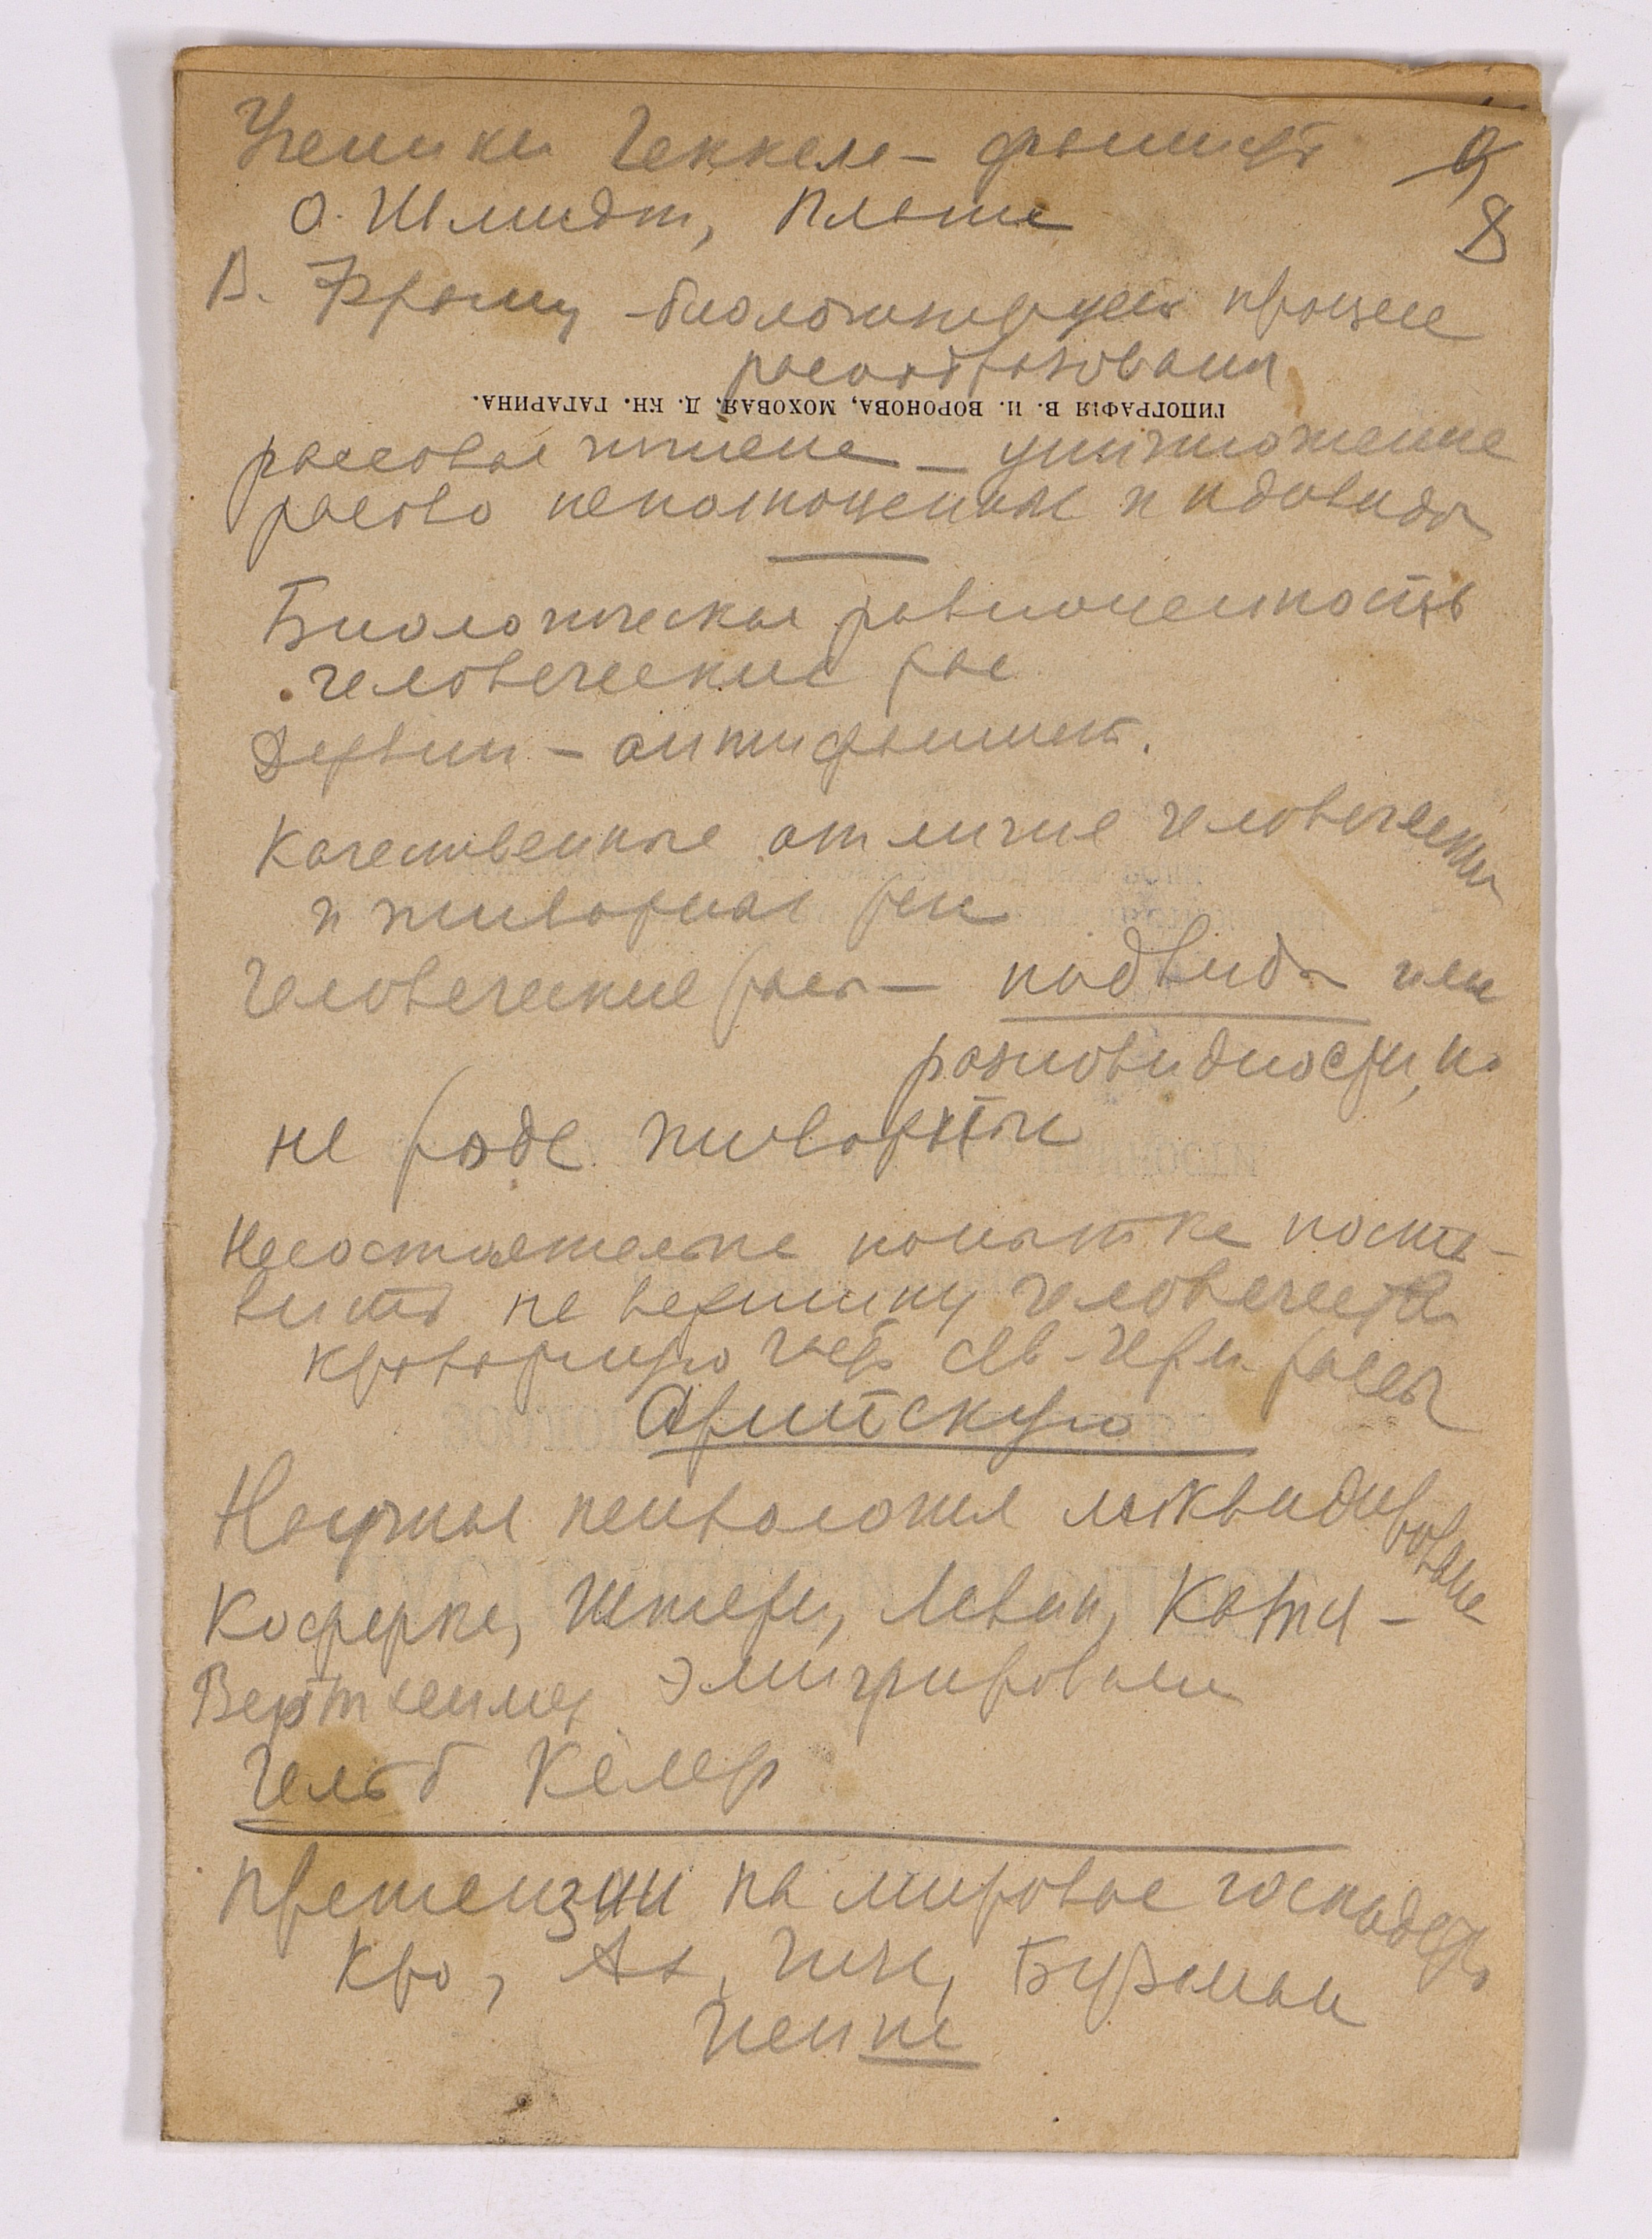 Ученики Геккеля – фашист 9
О. Шмидт, Плате 8
В. Франц – биологизирует процесс
расообразования
ТИПОГРАФІЯ В. И. ВОРОНОВА, МОХОВАЯ, Д. КН. ГАГАРИНА.
рассовая гигиена – уничтожение
расово неполноценных подвида
Биологическая равноценность
человеческих рас
Дарвин – антифашист.
Качественные отличие человеческих
и животных рас
Человеческие расы – подвиды или
разновидности, но
не роде животн
Несостоятельна попытка поста-
вить на вершину человечества
расы
Арийскую
Научная психология ликвидирована
Коффка, Штерн, Левин, Катц –
Вертгеймер эмигрировали
Гельб Келер
Претензии на мировое господств
Кро, Ах,